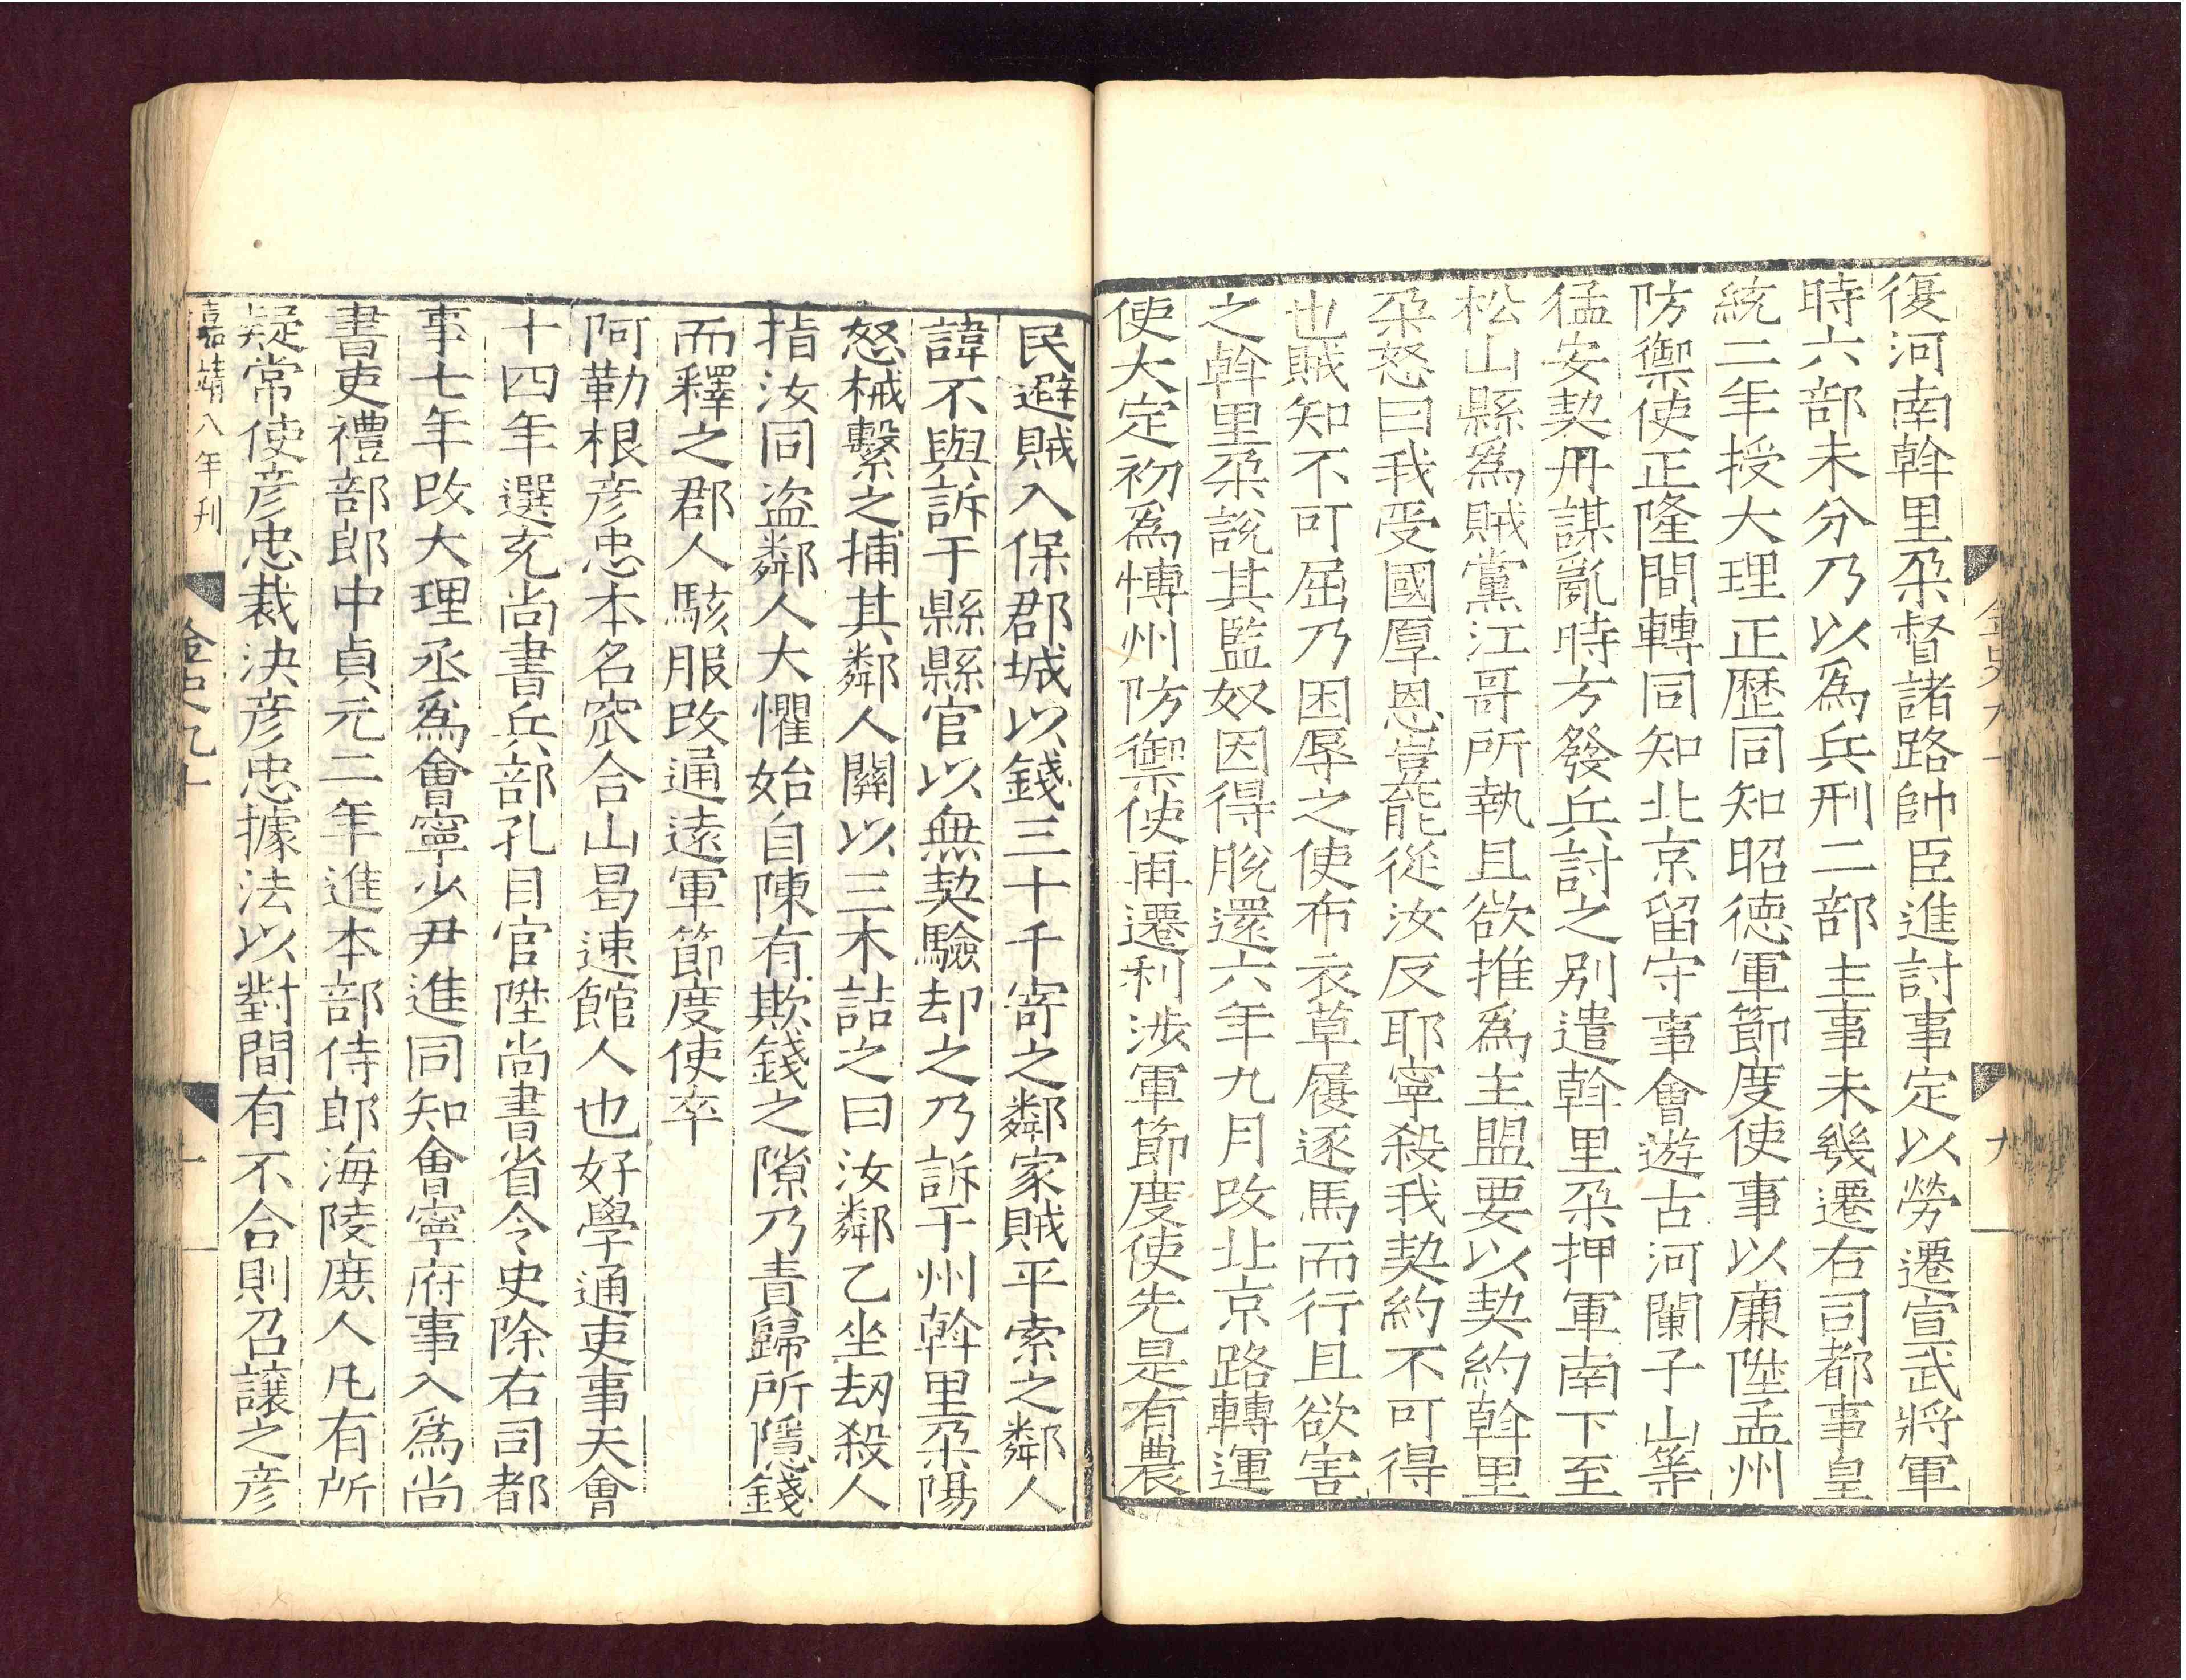 復河南斡里朶督諸路帥臣進討事定以勞遷宣武將軍
時六部未分乃以爲兵刑二部主事未幾遷右司都事皇
統二年授大理正歷同知昭德軍節度使事以廉陞孟州
防禦使正隆間轉同知北京留守事會遊古河闌子山等
猛安契丹謀亂時方發兵討之别遣斡里朶押軍南下至
松山縣爲賊黨江哥所執且欲推爲主盟要以契約斡里
朶怒曰我受國厚恩豈能從汝反耶寧殺我契約不可得
也賊知不可屈乃困辱之使布衣草屨逐馬而行且欲害
之斡里朶說其監奴因得脫還六年九月改北京路轉運
使大定初爲博州防禦使再遷利涉軍節度使先是有農
民避賊入保郡城以錢三十千寄之鄰家賊平索之鄰人
諱不與訴于縣縣官以無契驗却之乃訴于州斡里朶陽
怒械繫之捕其鄰人關以三木詰之曰汝鄰乙坐刼殺人
指汝同盗鄰人大懼始自陳有欺錢之隙乃責歸所隱錢
而釋之郡人駭服改通遠軍節度使卒
阿勒根彦忠本名窊合山曷速館人也好學通吏事天會
十四年選充尚書兵部孔目官陞尚書省令史除右司都
事七年改大理丞爲會寧少尹進同知會寧府事入爲尚
書吏禮部郎中貞元二年進本部侍郎海陵庶人凡有所
疑常使彦忠裁決彦忠據法以對間有不合則召讓之彦
嘉靖八年刊